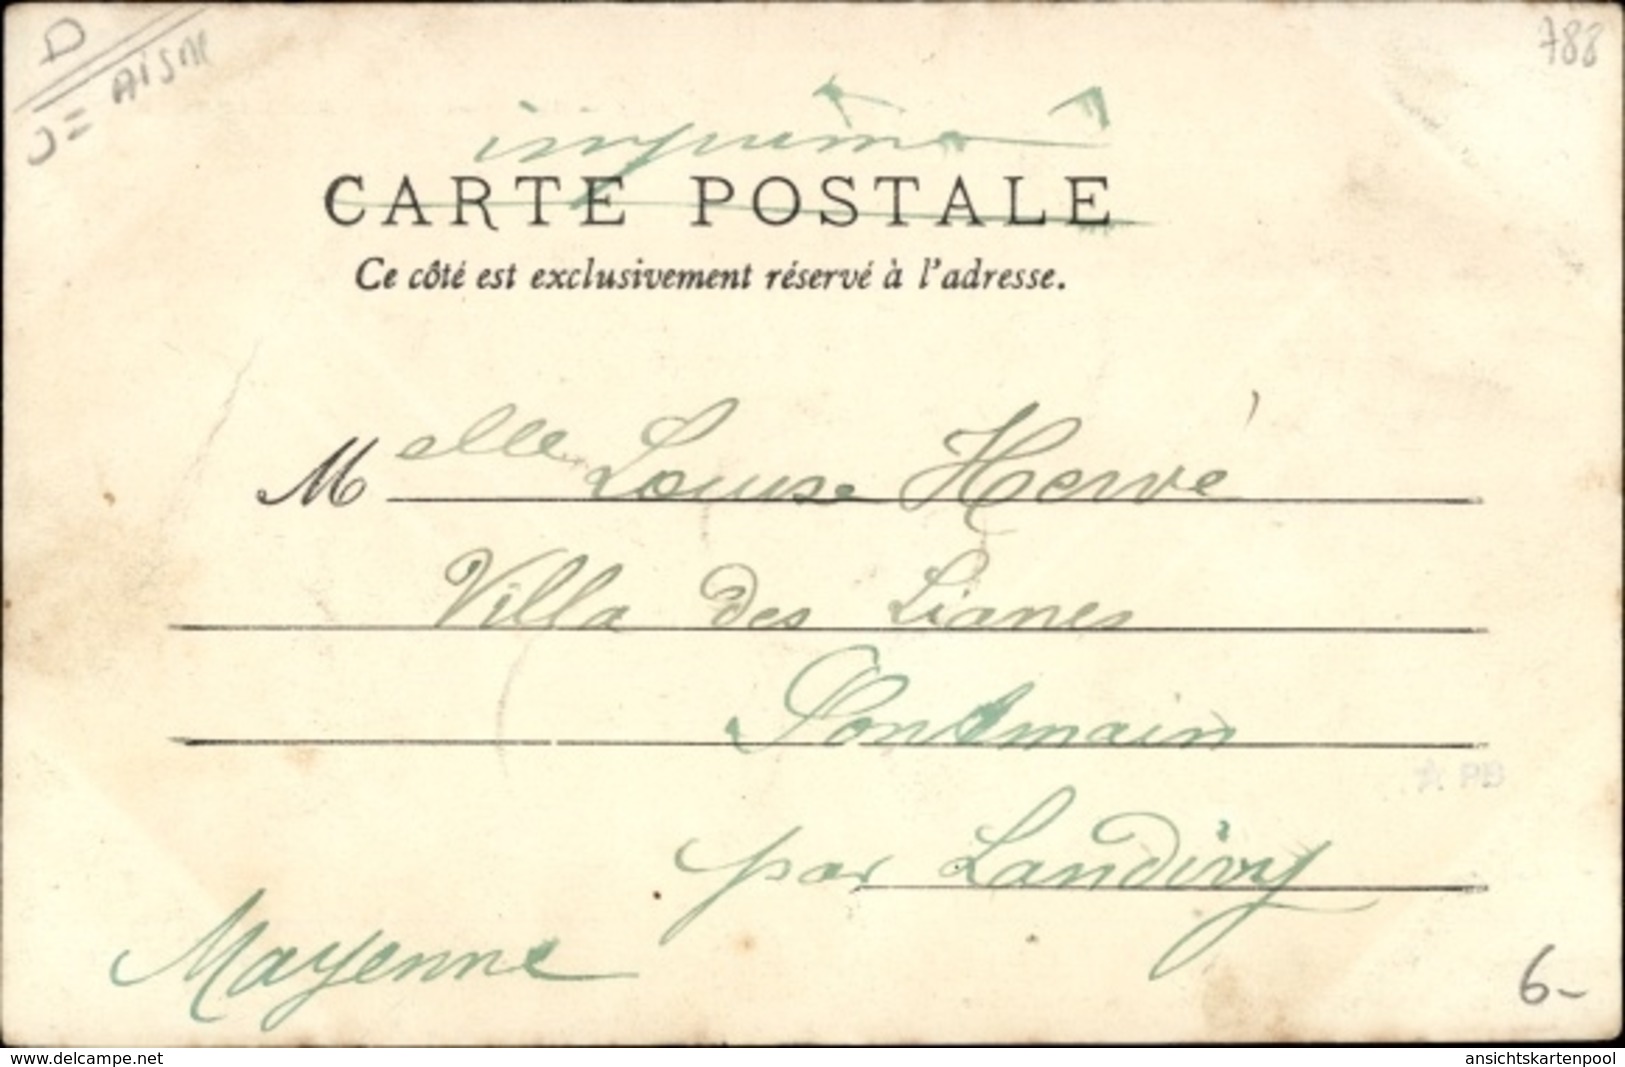 D
J= AISNE
788
imprimé
CARTE POSTALE
Ce côté est exclusivement réservé à l'adresse.
Melle Louise Hervé
Villa des Lianes
Pontmain
par Landivy
Mayenne
6-
www.delcampe.net
ansichtskartenpool